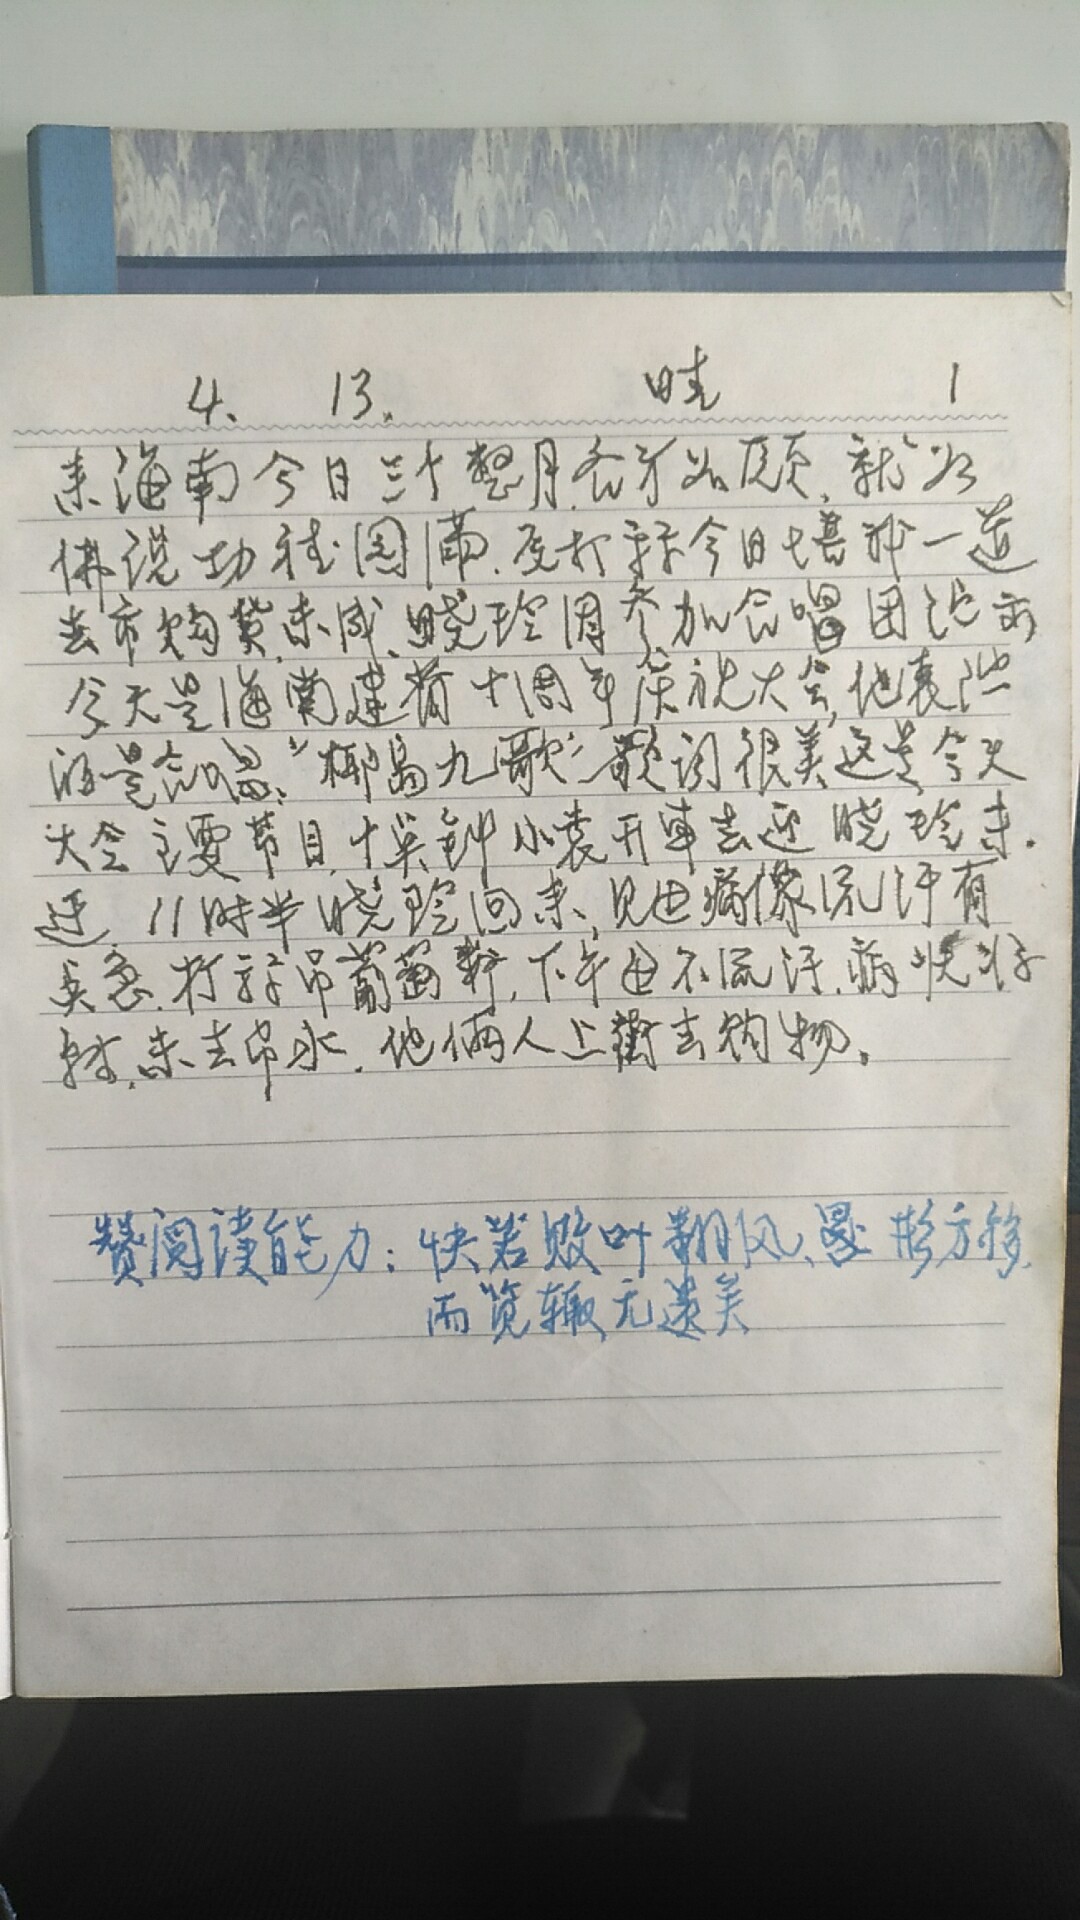 4. 13. 晴 1
来海南今日三个整月,各方如愿,就如
佛说功德圆满,原打算今日 一道
去市购货未成,晓玲因参加合唱团演出
今天是海南建省十周年庆祝大会,他表演
的是合唱,"椰岛九歌"歌词很美,这是今天
大会主要节目,十点钟小袁开车去迎晓玲未
迎,11时半晓玲回来,见 病像流汗有
点急,打算吊葡萄 ,下午 不流汗,病状好
转,未去吊水,他俩人上街去购物。
赞阅读能力:快若败叶翻风,晷影方移,
而览辄无遗矣